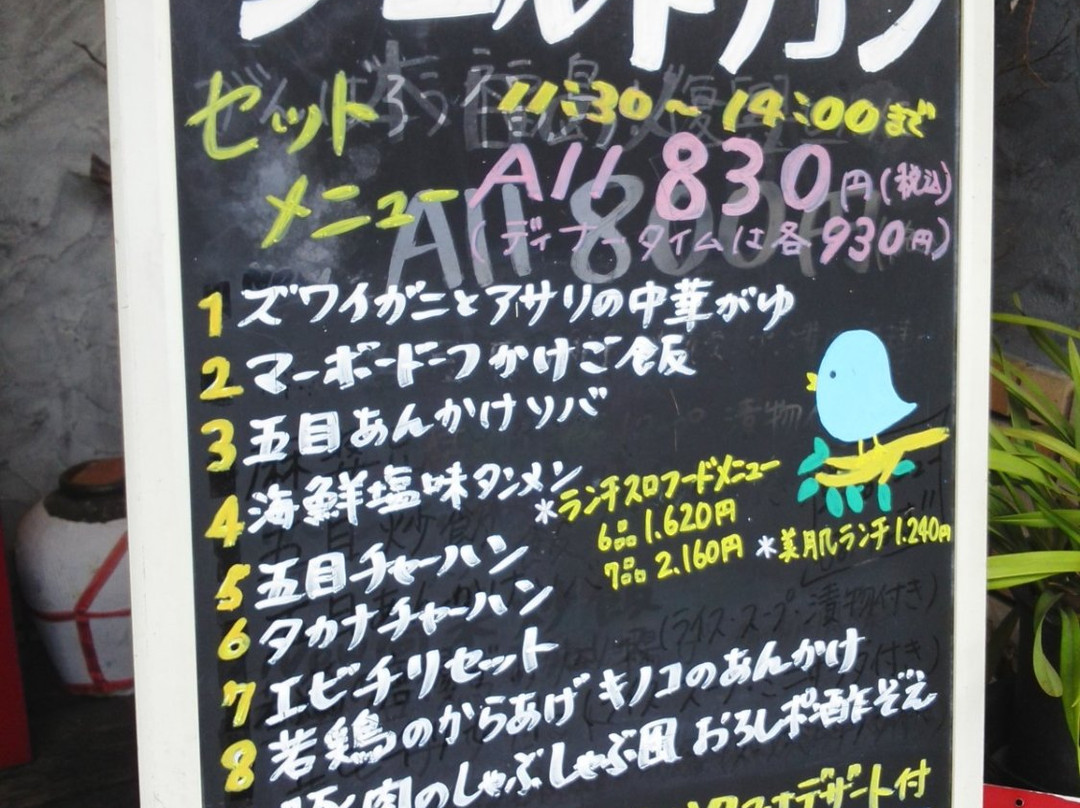 セット 11:30〜14:00まで
メニュー All 830円(税込)
(ディナータイムは各930円)
1 ズワイガニとアサリの中華がゆ
2 マーボードーフかけご飯
3 五目あんかけソバ
4 海鮮塩味タンメン
*ランチスロフードメニュー
6品 1.620円
7品 2.160円
*美肌ランチ1.240円
5 五目チャーハン
6 タカナチャーハン
7 エビチリセット
8 若鶏のからあげ キノコのあんかけ
豚肉のしゃぶしゃぶ風 おろしポン酢ぞえ
デザート付